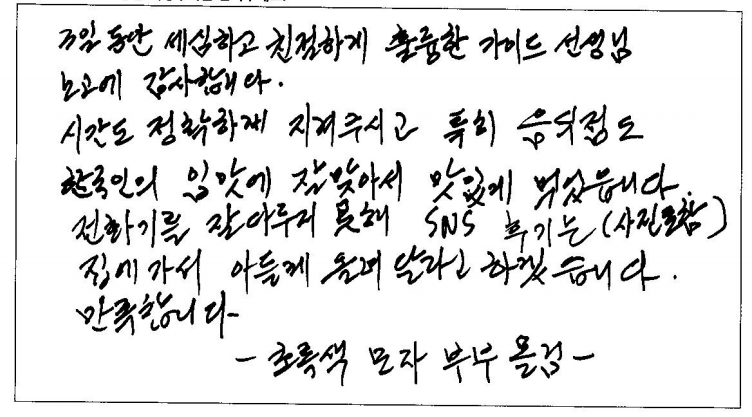 3일 동안 세심하고 친절하게 훌륭한 가이드 선생님
노고에 감사합니다.
시간도 정확하게 지켜주시고 특히 음식점도
한국인의 입맛에 잘맞아서 맛있게 먹었습니다.
전화기를 잘 다루지 못해 SNS 후기는 (사진포함)
집에 가서 아들께 올려 달라고 하겠습니다.
만족합니다-
- 초록색 모자 부부 올림 -